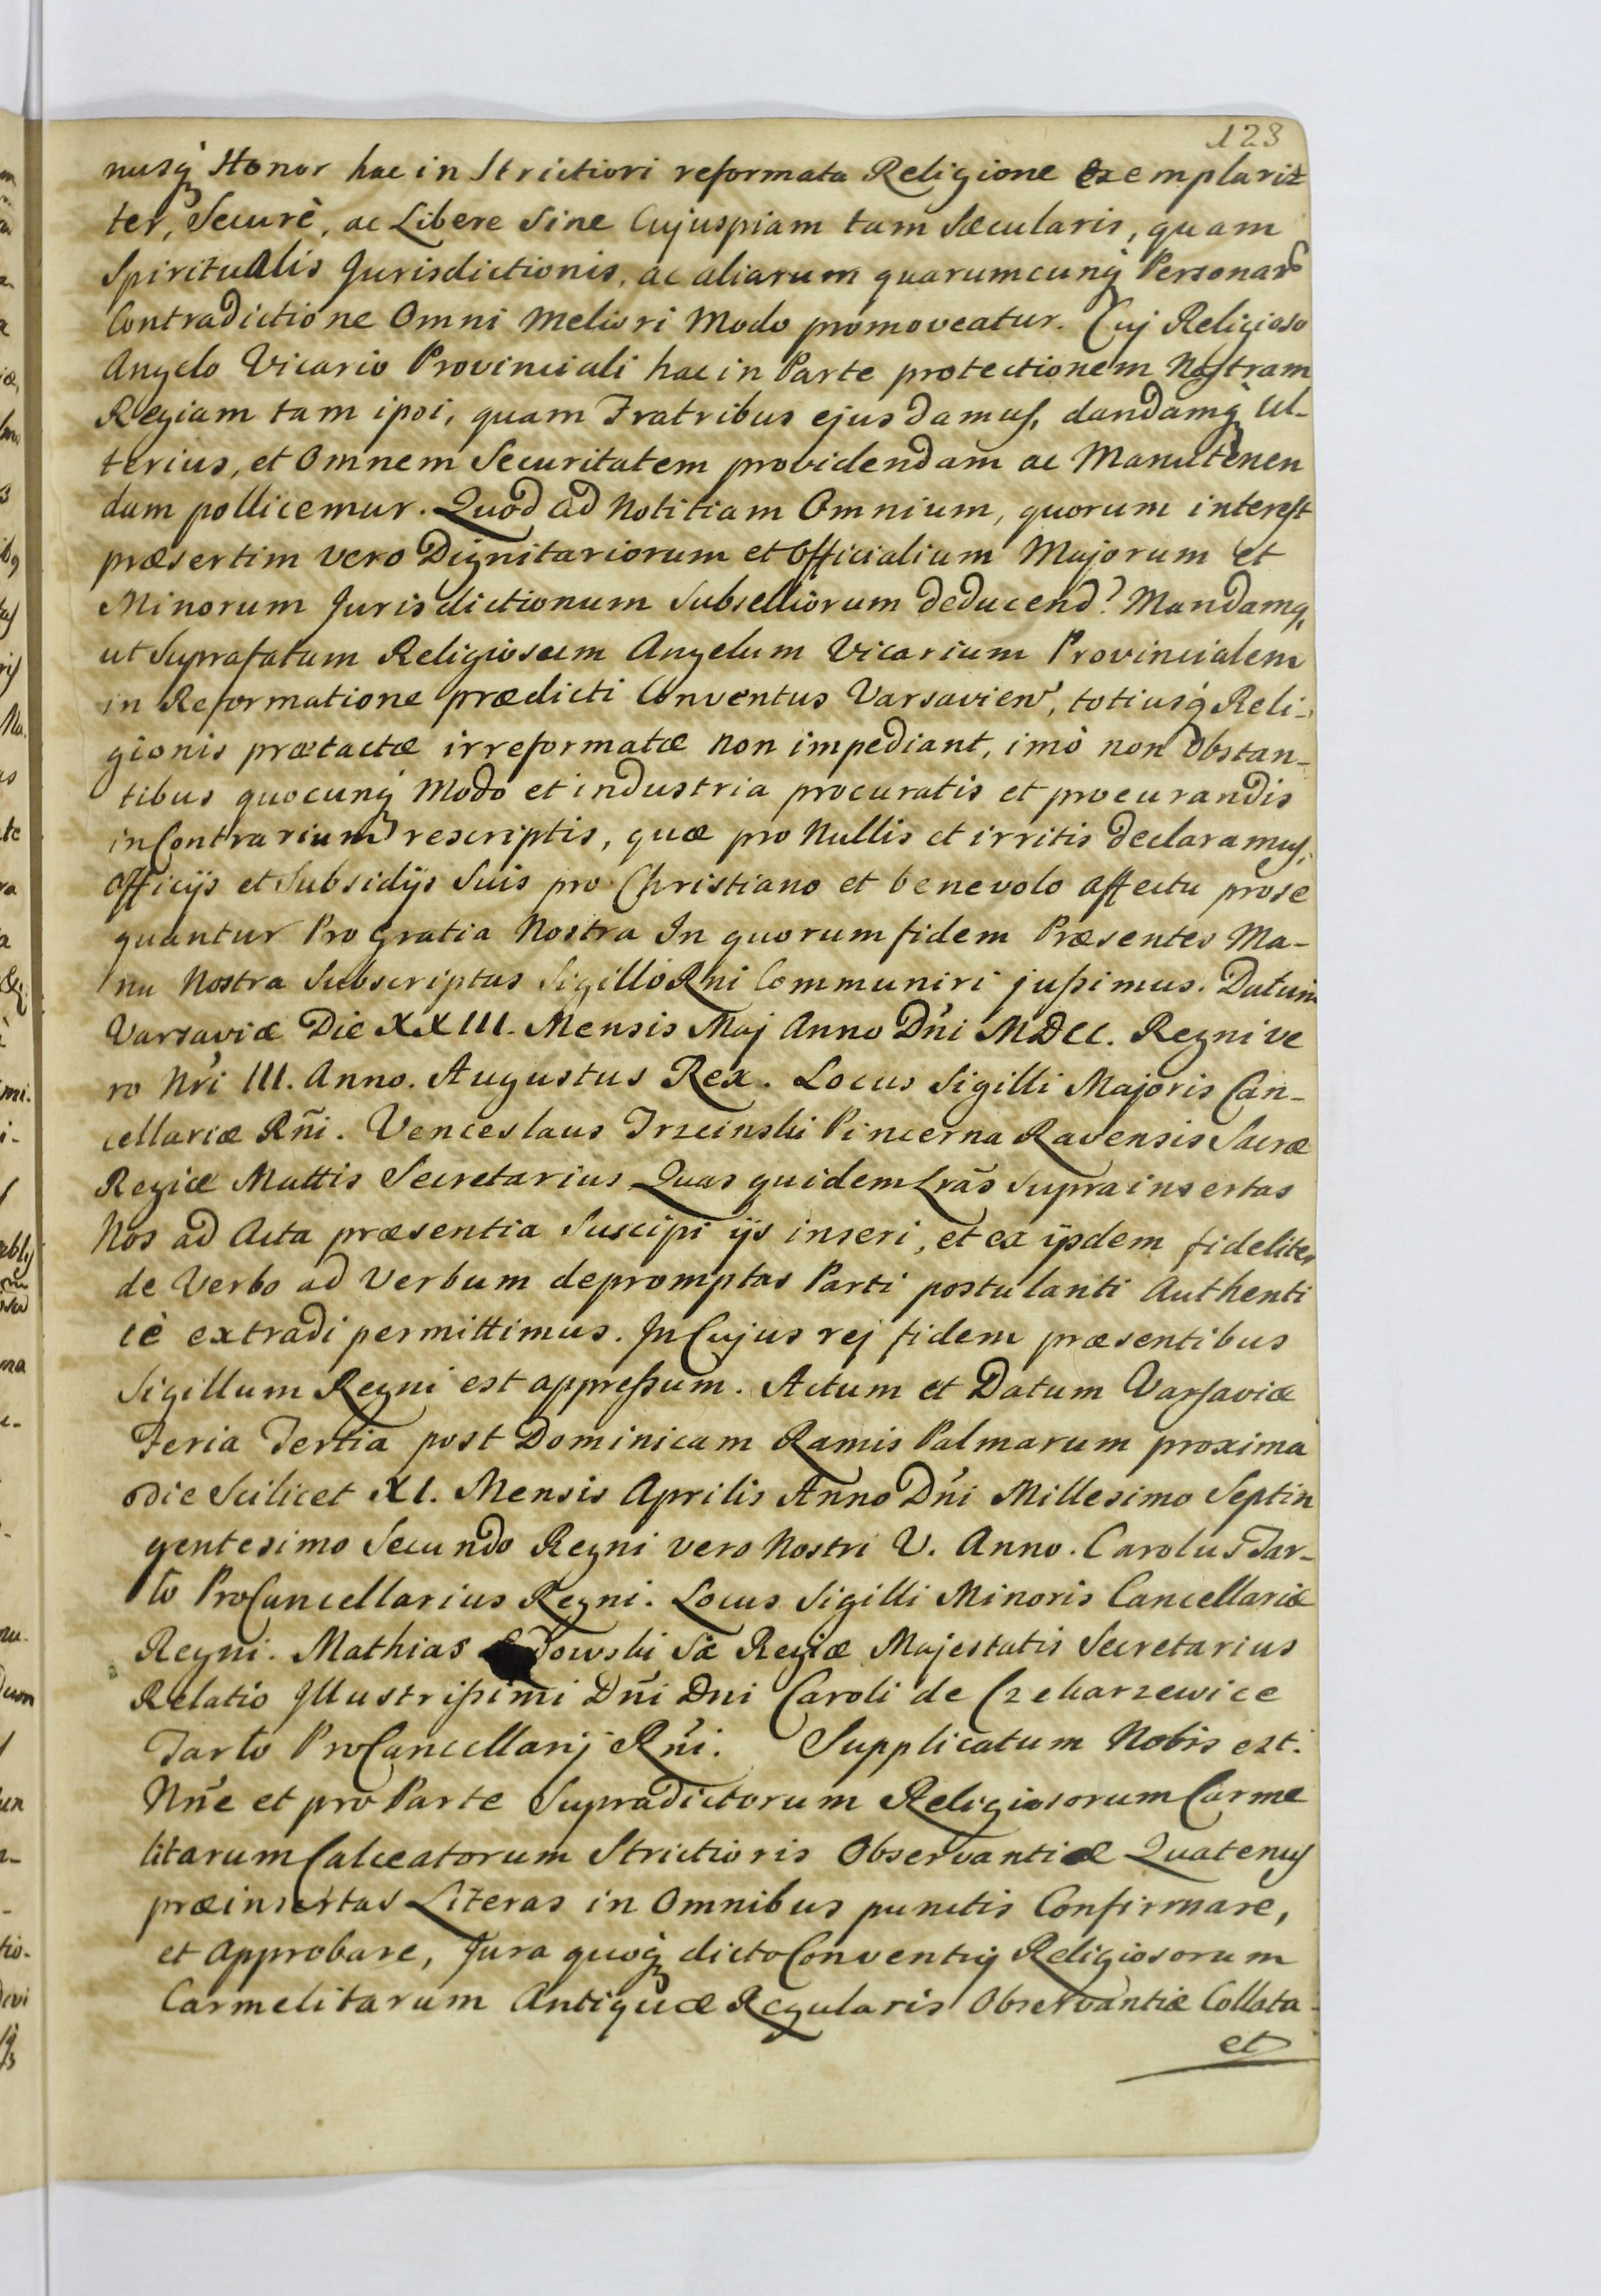 123
nusq́ Honor hac in Strictiori reformata Religione exemplarit
ter, Securè, ac Libere Sine Cujuspiam tam Sæcularis, quam
Spiritualis Jurisdictionis, ac aliarum quarumcunq́ Personar
Contradictione Omni Meliori Modo promoveatur. Cuj Religioso
Angelo Vicario Provinciali hac in Parte protectionem Nostram
Regiam tam ipoi, quam Fratribus ejus damus, dandamq́ Ul-
terius, et Omnem Securitatem providendam ac Manutenen
dam pollicemur. Quod ad Notitiam Omnium, quorum interest
præsertim vero Dignitariorum et Officialium Majorum et
Minorum Jurisdictionum Subselliorum deducend? Mandamq,
ut Suprafatum Religiosum Angelum Vicarium Provincialem
in Reformatione prædicti Conventus Varsavien, totiusq́ Reli-
gionis prætactæ irreformatæ non impediant, imò non obstan-
tibus quocunq́ Modo et industria procuratis et procurandis
in Contrarium rescriptis, quæ pro Nullis et irritis declaramus,
Officijs et Subsidijs Suis pro Christiano et benevolo affectu prose
quantur Pro Gratia Nostra In quorum fidem Præsentes Ma-
nu Nostra Subscriptas Sigillo Rni Communiri jußimus. Datum
Varsaviæ Die XXIII. Mensis Maj Anno Dńi MDCC. Regni ve
ro Nŕi III. Anno. Augustus Rex. Locus Sigilli Majoris Can-
cellariæ Rñi. Venceslaus Trzcinski Pincerna Ravensis Sacræ
Regiæ Mattis Secretarius Quas quidem Lrãs Supra insertas
Nos ad Acta præsentia Suscipi ijs inseri, et ex ijsdem fideliter
de Verbo ad Verbum depromptas Parti postulanti Authenti
cè extradi permittimus. In Cujus rej fidem præsentibus
Sigillum Regni est appreßum. Actum et Datum Varsaviæ
Feria Tertia post Dominicam Ramis Palmarum proxima
die Scilicet XI. Mensis Aprilis Anno Dńi Millesimo Septin
gentesimo Secundo Regni vero Nostri V. Anno. Carolus Tar-
ło ProCancellarius Regni. Locus Sigilli Minoris Cancellariæ
Regni. Mathias Sæ Regiæ Majestatis Secretarius
Relatio Illustrißimi Dñi Dni Caroli de Czekarzewice
Tarło ProCancellarij Rńi. Supplicatum Nobis est.
Nñe et pro Parte Supradictorum Religiosorum Carme
litarum Calceatorum Strictioris Observantiæ Quatenus
præinsertas Literas in Omnibus punctis Confirmare,
et Approbare, Jura quoq́ dicto Conventuj Religiosorum
Carmelitarum Antiquæ Regularis Observantiæ Collata
et